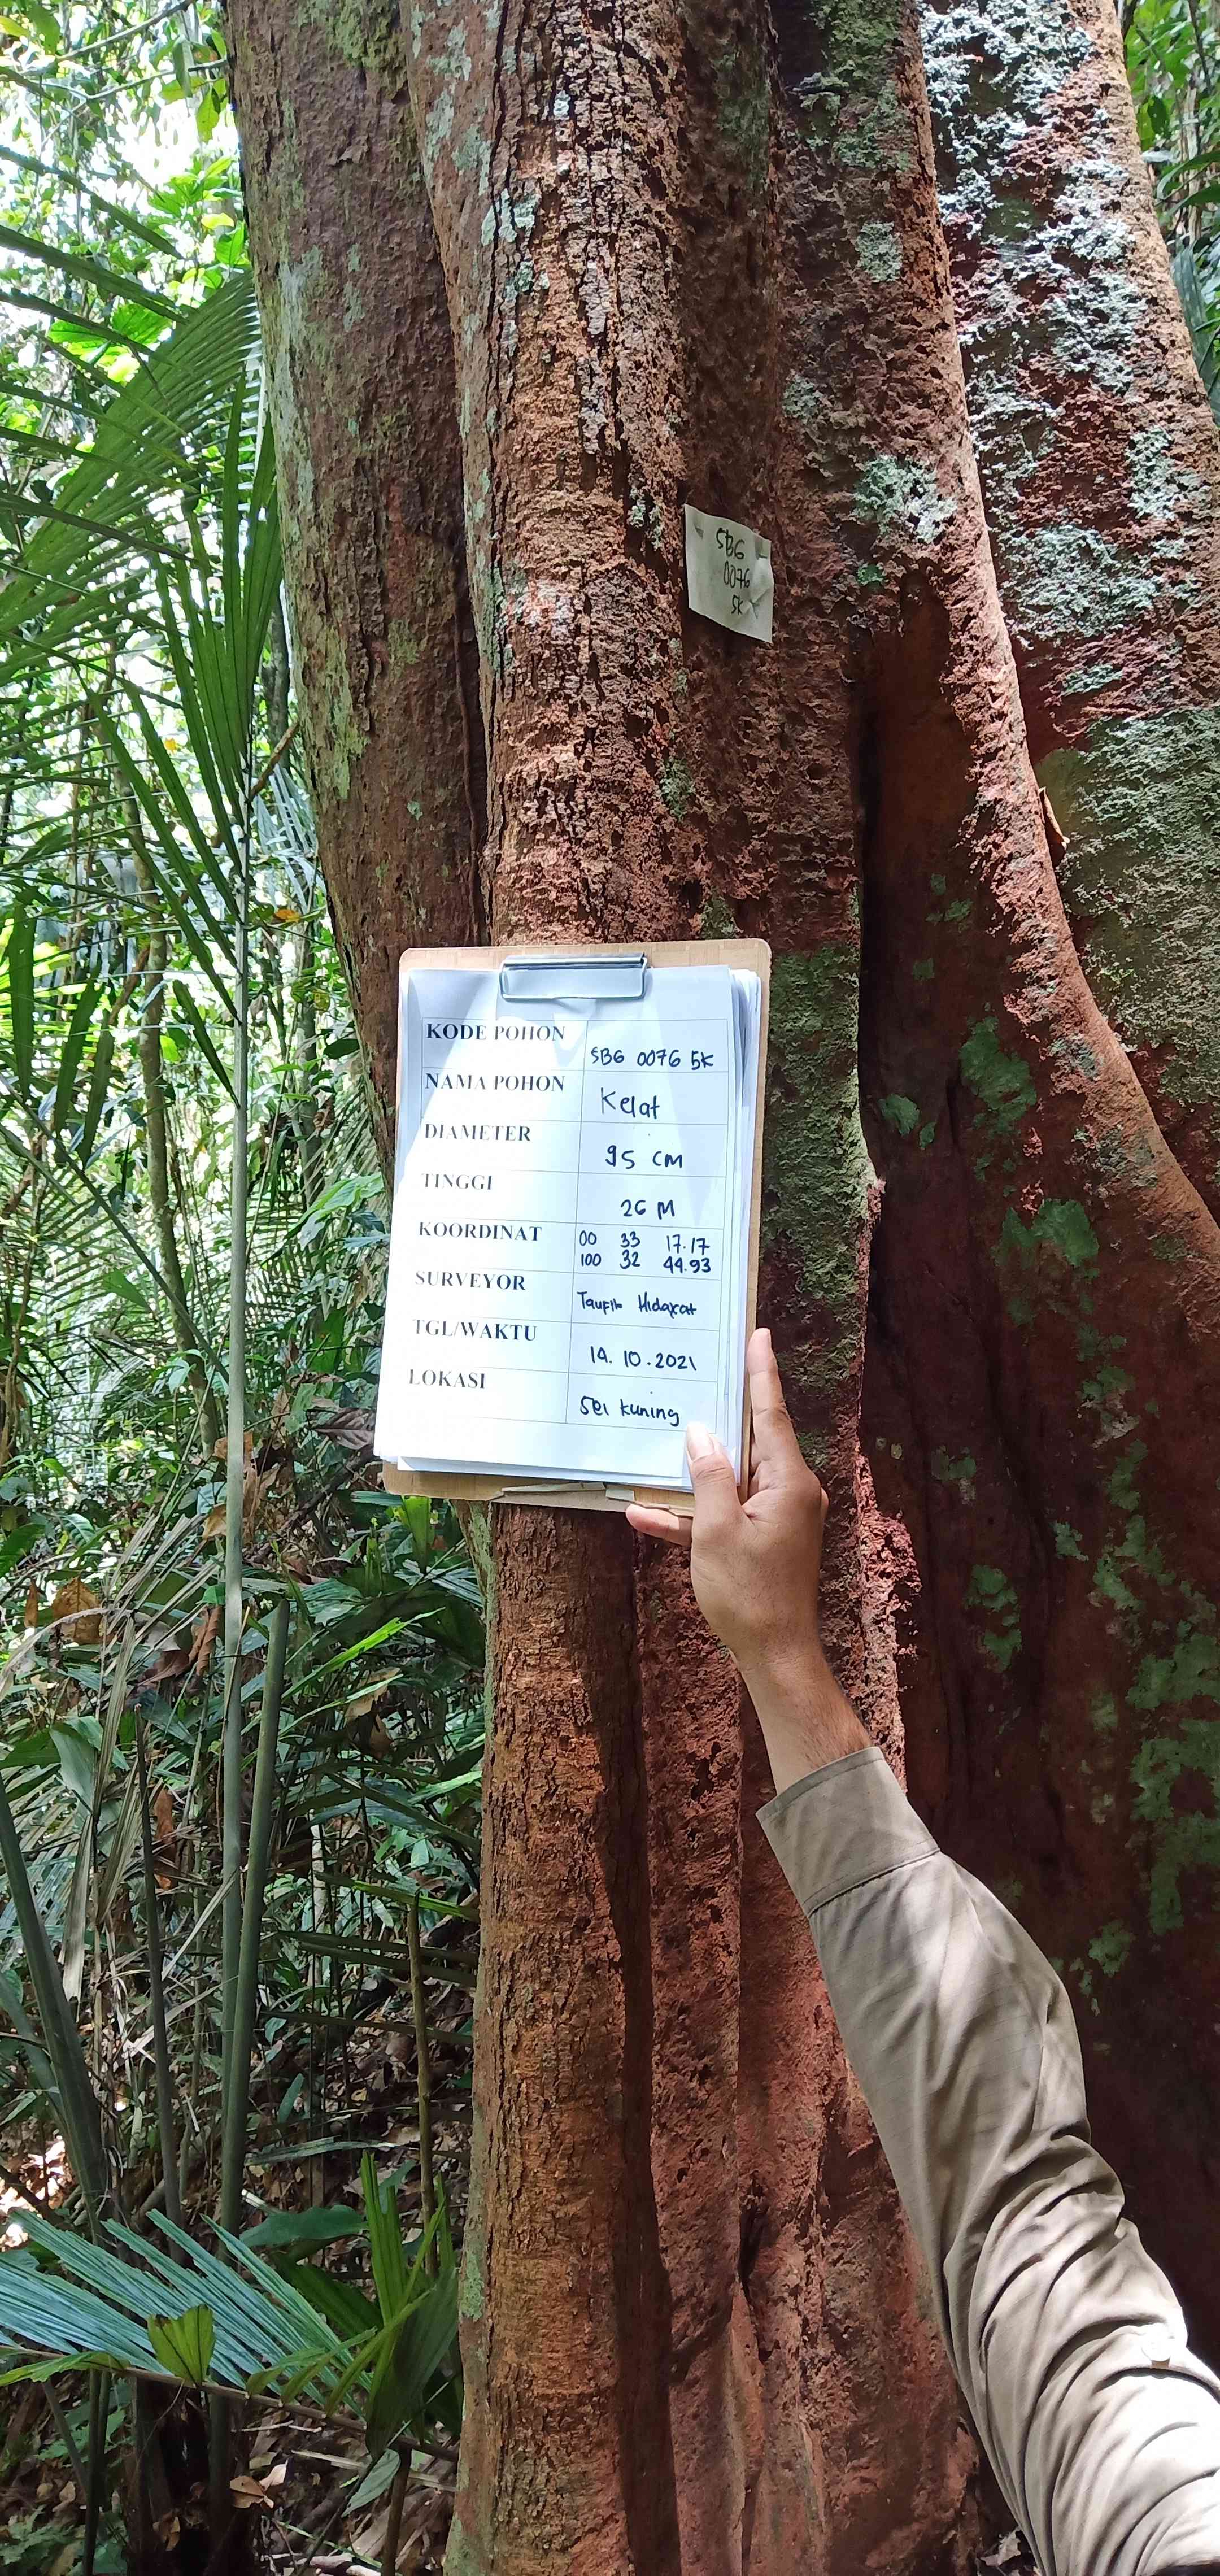 SBG
0076
5K
KODE POHON SBG 0076 5K
NAMA POHON Kelat
DIAMETER 95 CM
TINGGI 26 M
KOORDINAT 00 33 17.17
100 32 44.93
SURVEYOR Taufik Hidayat
TGL/WAKTU 14.10.2021
LOKASI Sei Kuning